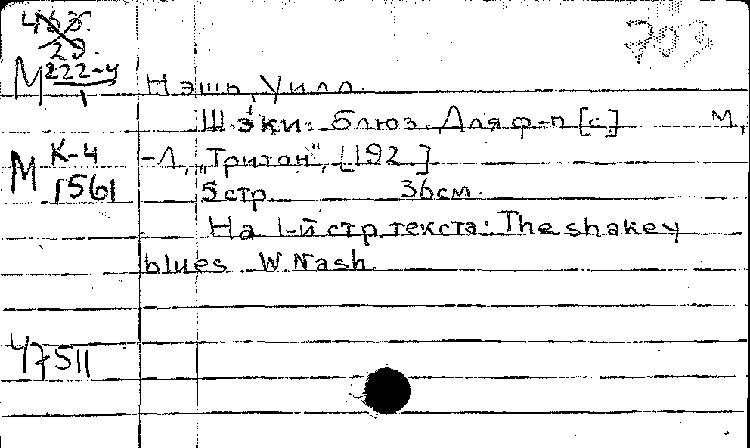 703
М 222-4/1
Нэшь, Уилл.
Шэки-блюз. Для ф-п [с.] М.,
М К-4/1561
-Л., "Тритон", [192.]
5 стр. 36см.
На 1-й стр. текста: The shakey
blues W. Nash
47511